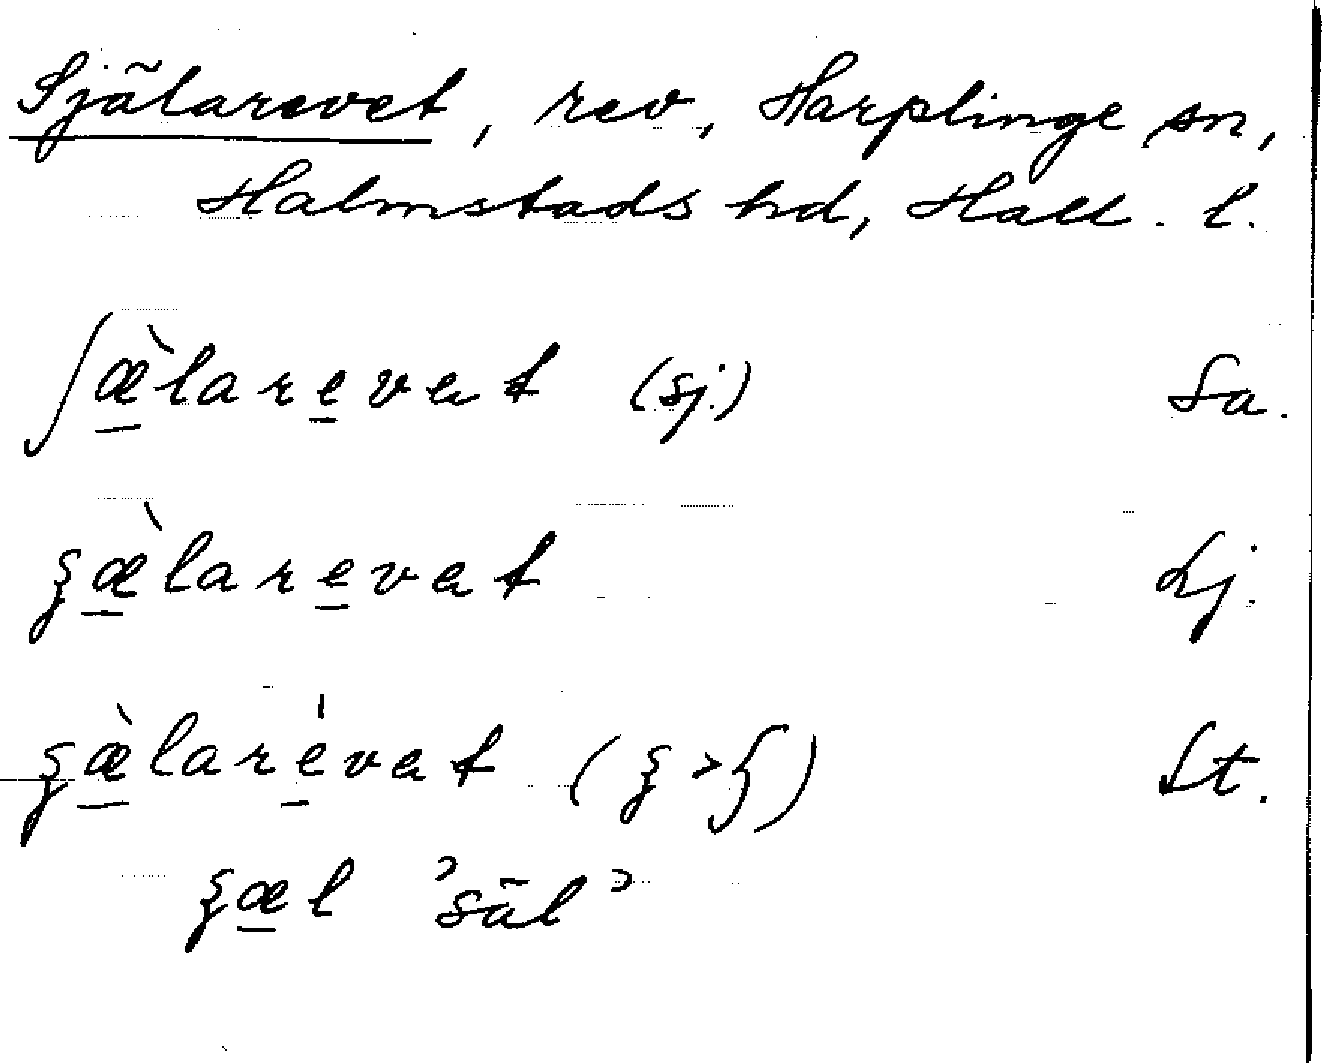 Själarevet, rev, Harplinge sn,
Halmstads hd, Hall. l.
ʃæ̱̀lare̱vɐt (sj.) Sa.
ʂæ̱̀lare̱vɐt Lj.
ʂæ̱̀laré̱vɐt (ʂ > ʃ) St.
ʂæ̱l 'säl'